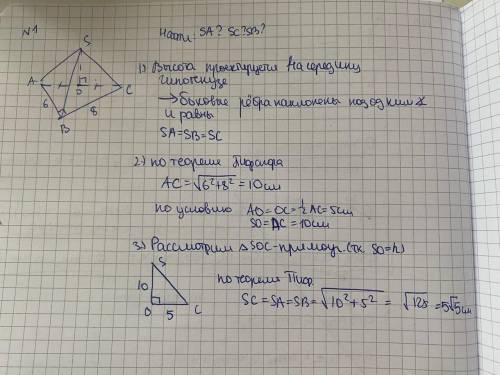 N1
Найти: SA? SC? SB?
S
A
O
C
B
6
8
1) Высота проектируется на середину
гипотенузы
→ боковые рёбра наклонены под одним ∠
и равны
SA=SB=SC
2) по теореме Пифагора
AC=√6²+8² = 10см
по условию AO=OC=½AC=5см
SO=AC=10см
3) Рассмотрим △SOC-прямоуг.(тк. SO=h)
S
10
O
5
C
по теореме Пиф.
SC=SA=SB=√10²+5² = √125 =5√5см